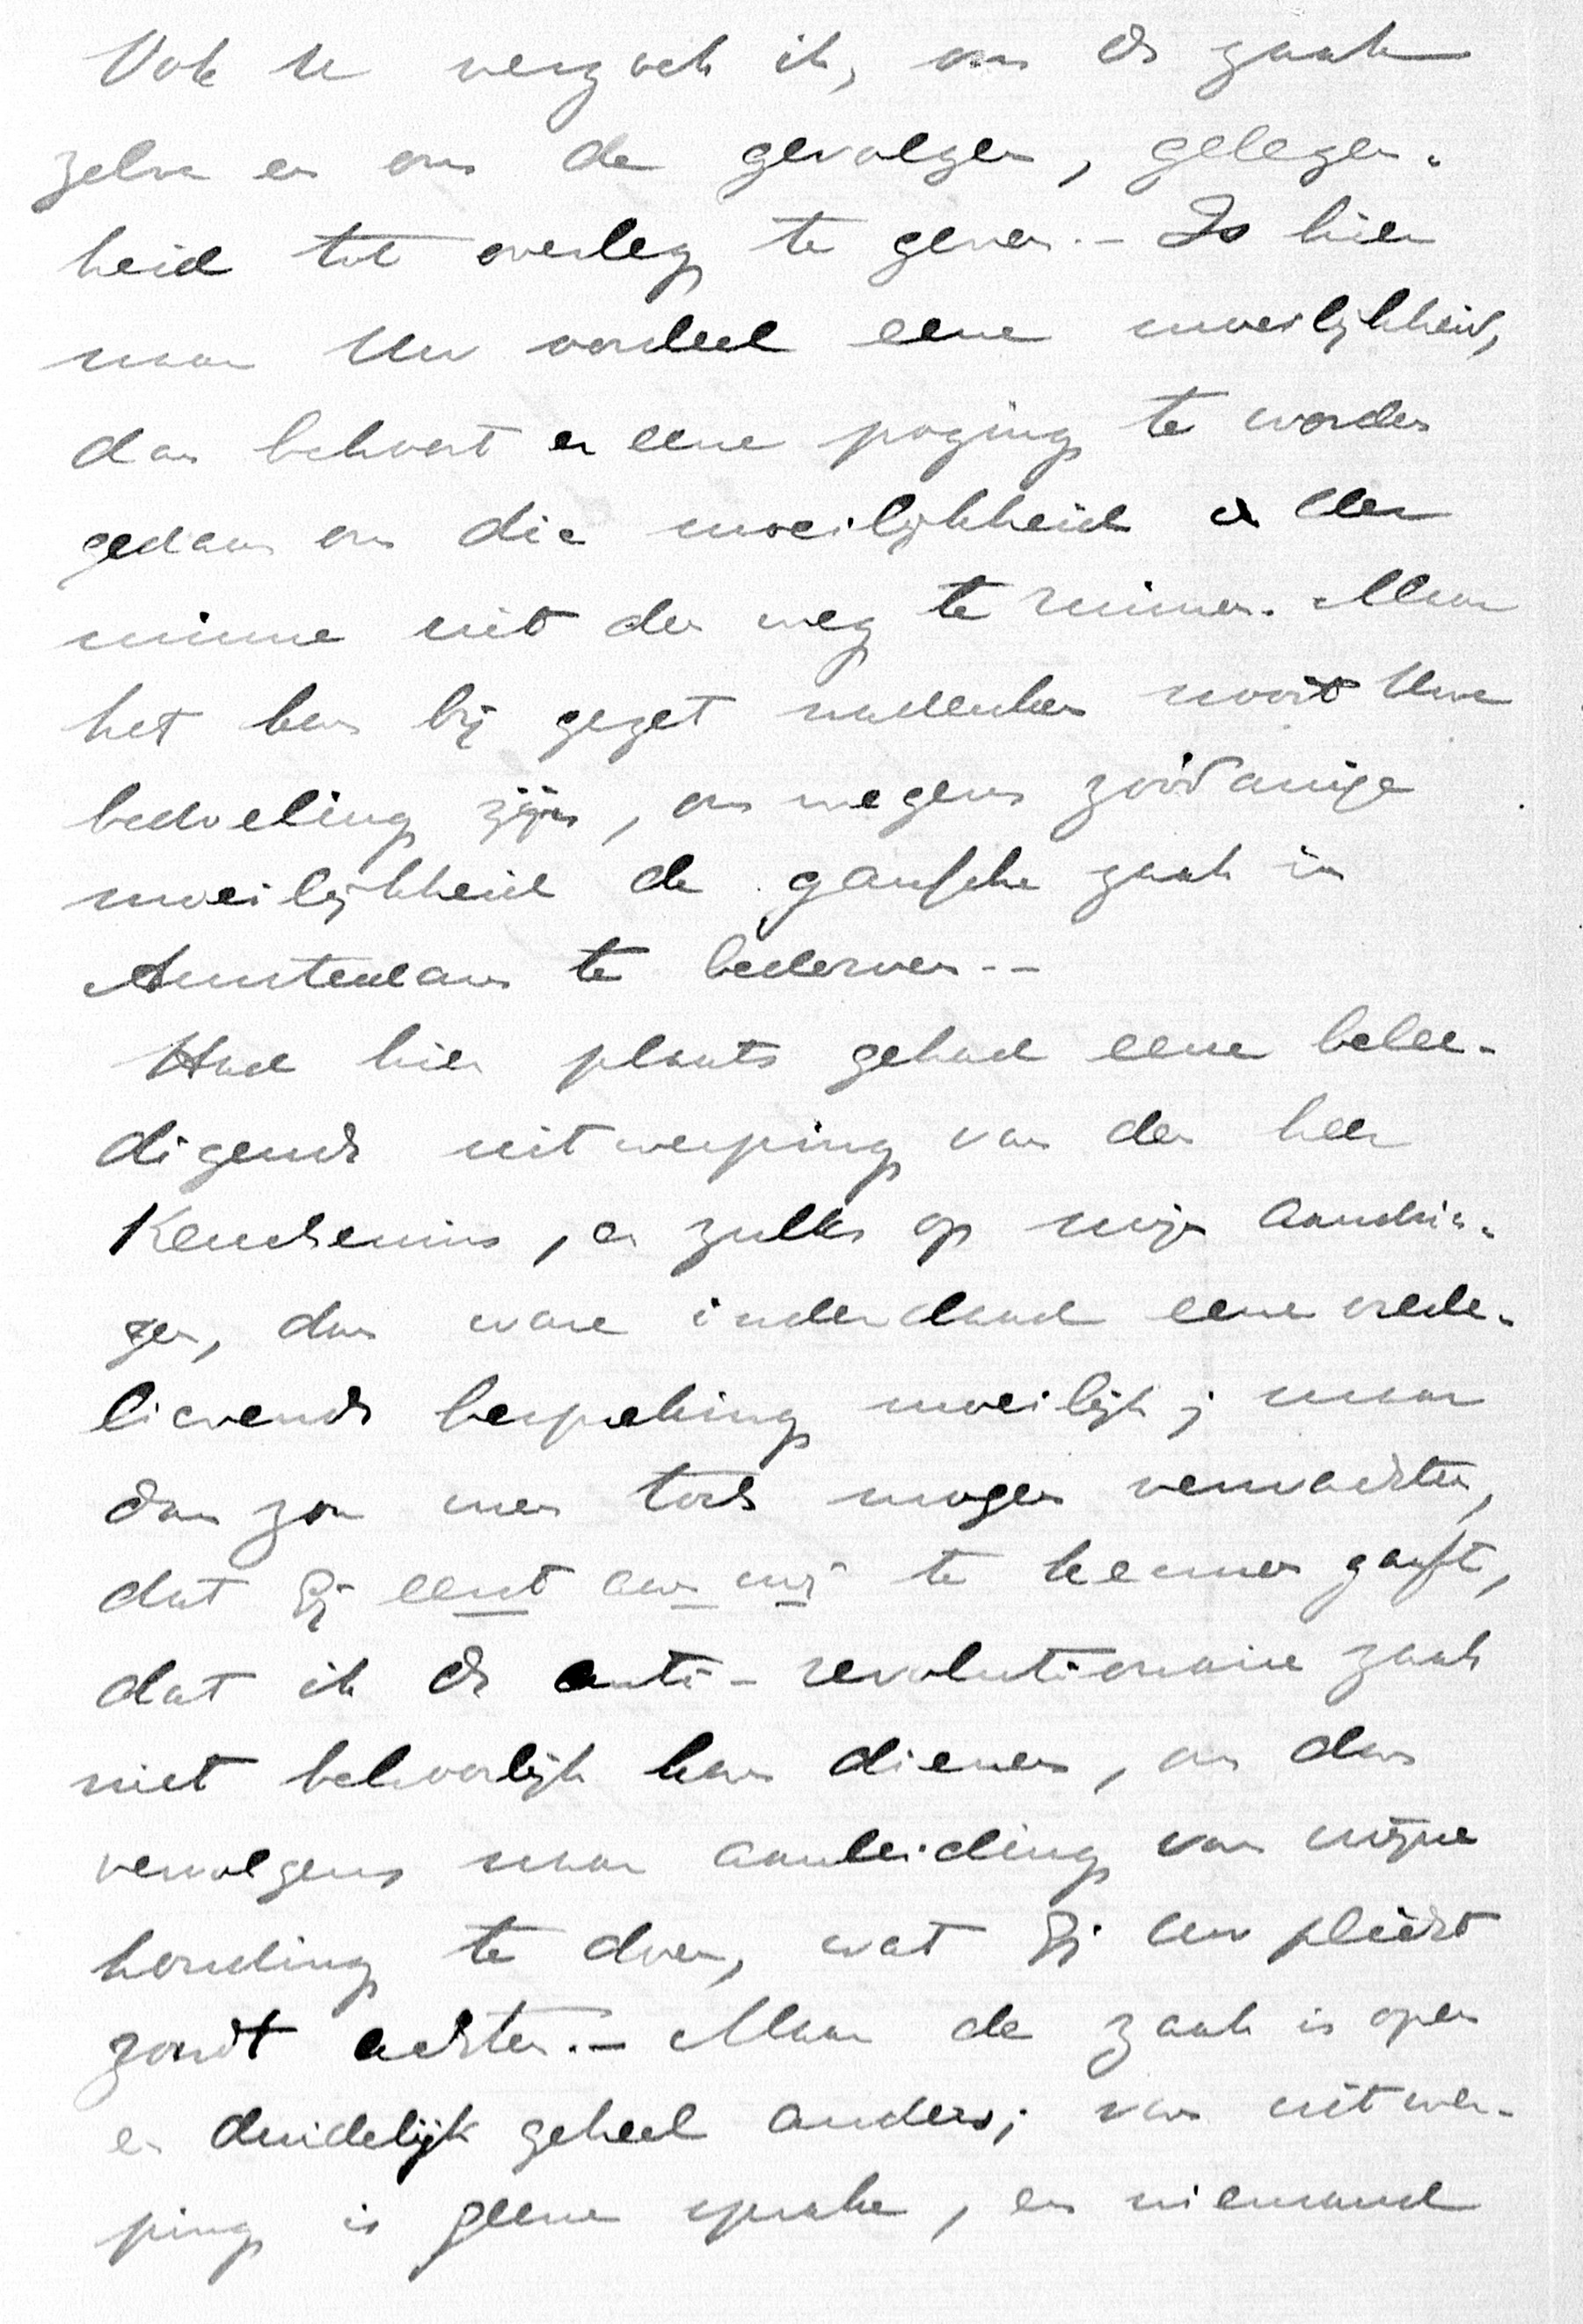 Ook U verzoek ik, om de zaak
zelve en om de gevolgen, gelegen-
heid tot overleg te geven. — Is hier
naar Uw oordeel eene moeilijkheid,
dan behoort er eene poging te worden
gedaan om die moeilijkheid in der
minne uit den weg te ruimen. Maar
het kan bij gezet nadenken nooit Uwe
bedoeling zijn, om wegens zóódanige
moeilijkheid de gansche zaak in
Amsterdam te bederven. —
Had hier plaats gehad eene belee-
digende uitwerping van den heer
Keuchenius, en zulks op mijn aandrin-
gen, dan ware inderdaad eene vrede-
lievende bespreking moeilijk; maar
dan zou men toch mogen verwachten,
dat Gij eerst aan mij te kennen gaaft,
dat ik de anti-revolutionaire zaak
niet behoorlijk kan dienen, om dan
vervolgens naar aanleiding van mijne
houding te doen, wat Gij Uw plicht
zoudt achten. — Maar de zaak is open
en duidelijk geheel anders; van uitwer-
ping is geene sprake, en niemand